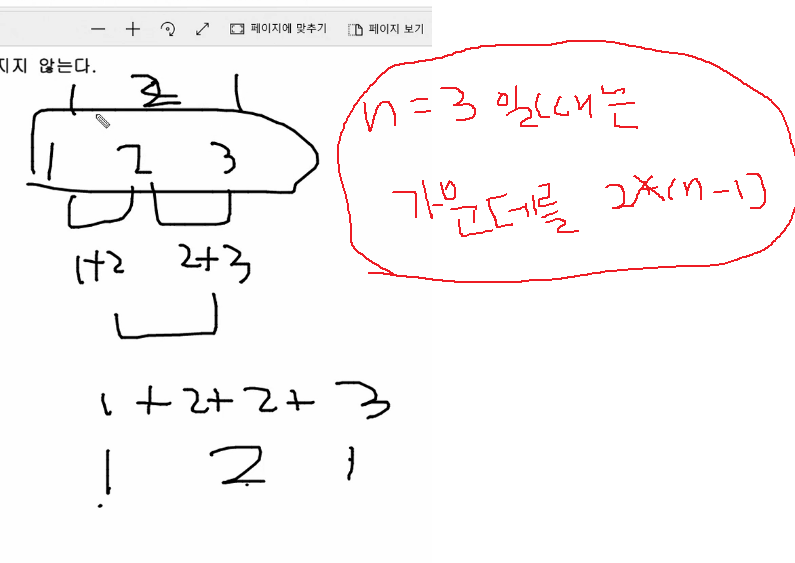 페이지에 맞추기 페이지 보기
지지 않는다.
1 2 1
1 2 3
1+2 2+3
1 + 2 + 2 + 3
1 2 1
n = 3 일때는
가운데를 2×(n-1)